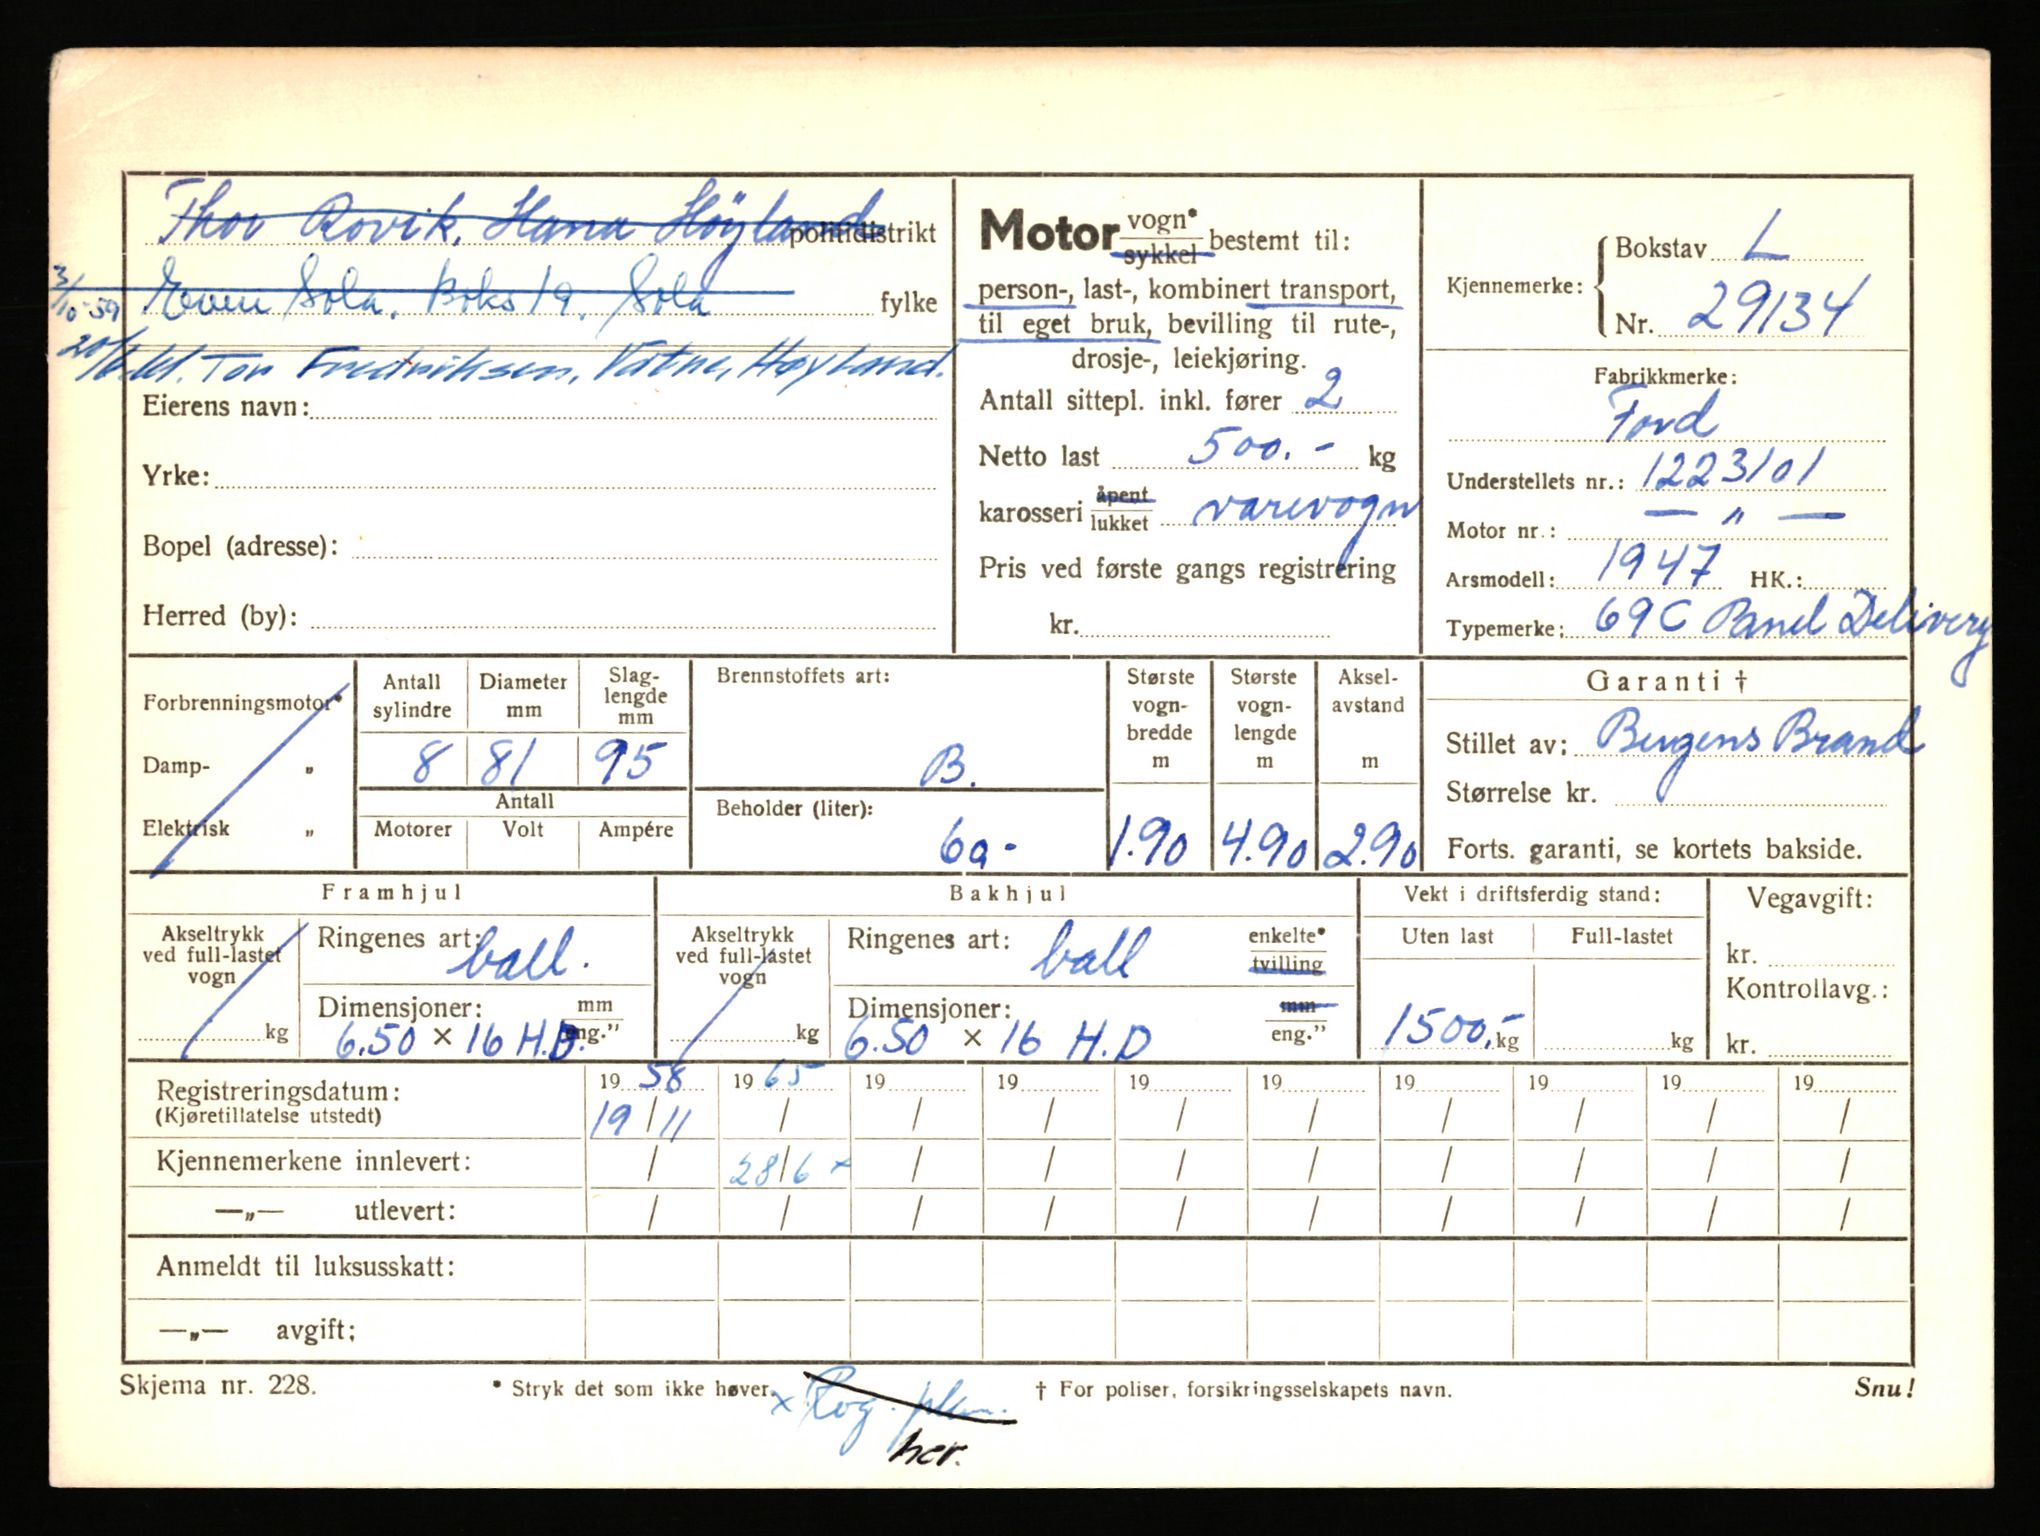 Thor Rovik, Hana Høyland politidistrikt
3/10-59 Even Sola, Boks 19, Sola fylke
Tor Fredriksen, Vatne, Høyland.
Eierens navn:
Yrke:
Bopel (adresse):
Herred (by):
Motor vogn* / sykkel bestemt til:
person-, last-, kombinert transport,
til eget bruk, bevilling til rute-,
drosje-, leiekjøring.
Antall sittepl. inkl. fører 2
Netto last 500.- kg
karosseri åpent / lukket varevogn
Pris ved første gangs registrering
kr.
Kjennemerke: Bokstav L
Nr. 29134
Fabrikkmerke:
Ford
Understellets nr.: 1223101
Motor nr.: — " —
Arsmodell: 1947 HK.:
Typemerke: 69C Panel Delivery
Forbrenningsmotor*
Damp- "
Elektrisk "
Antall sylindre Diameter mm Slag-lengde mm
8 81 95
Antall
Motorer Volt Ampére
Brennstoffets art:
B.
Beholder (liter):
60-
Største vogn-bredde m
1.90
Største vogn-lengde m
4.90
Aksel-avstand m
2.90
Garanti †
Stillet av: Bergens Brand
Størrelse kr.
Forts. garanti, se kortets bakside.
Framhjul
Akseltrykk ved full-lastet vogn
kg
Ringenes art: ball.
Dimensjoner: mm / eng."
6.50 × 16 H.D.
Bakhjul
Akseltrykk ved full-lastet vogn
kg
Ringenes art: ball enkelte* / tvilling
Dimensjoner: mm / eng."
6.50 × 16 H.D
Vekt i driftsferdig stand:
Uten last Full-lastet
1500,- kg kg
Vegavgift:
kr.
Kontrollavg.:
kr.
Registreringsdatum: 19 58 19 65 19 19 19 19 19 19 19 19
(Kjøretillatelse utstedt) 19/11 / / / / / / / / /
Kjennemerkene innlevert: / 28/6 × / / / / / / / /
—„— utlevert: / / / / / / / / / /
Anmeldt til luksusskatt:
—„— avgift:
Skjema nr. 228. * Stryk det som ikke høver. † For poliser, forsikringsselskapets navn. Snu!
× Rog.
her.